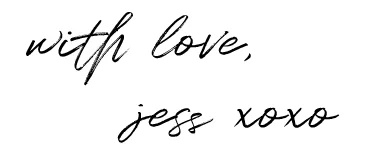 with love,
jess xoxo